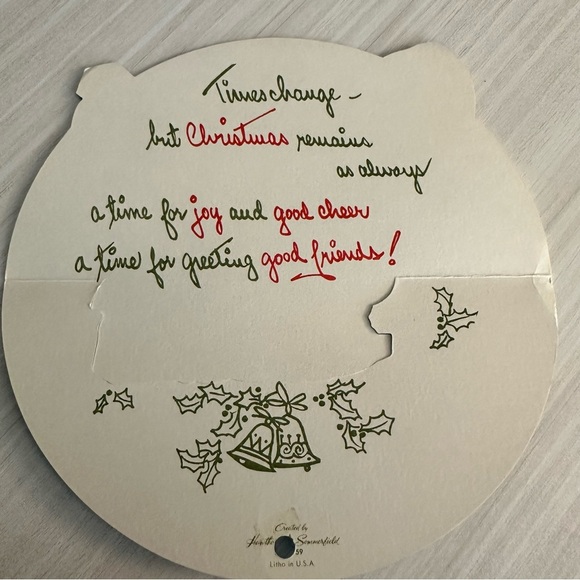 Times change –
but Christmas remains
as always
a time for joy and good cheer
a time for greeting good friends!
Created by
Sommerfield
59
Litho in U.S.A.